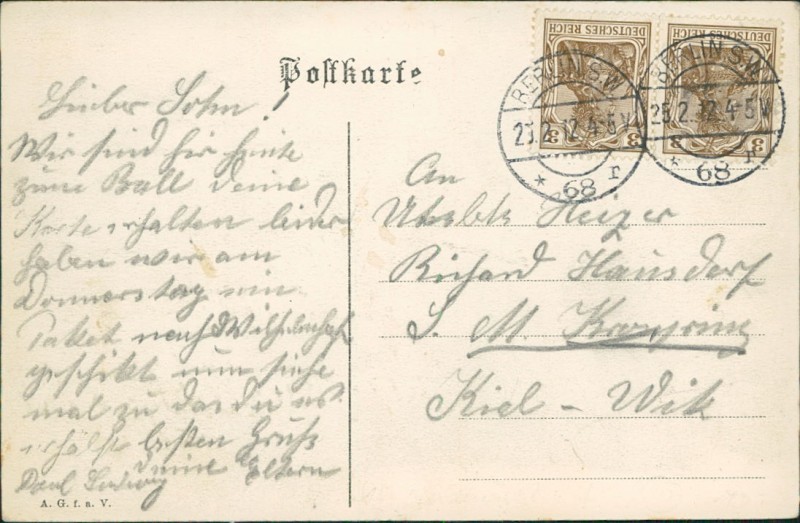 Postkarte
DEUTSCHES REICH
DEUTSCHES REICH
3
3
BERLIN S.W
2 12 4-5 V
* 68 r
BERLIN S.W
25.2.12 4-5 V
* 68 r
Lieber Sohn!
Wir sind hir heute
zum Ball deine
Karte erhalten leider
haben wir am
Donnerstag ein
Paket nach Wilhelmshafe
geschikt nun siehe
mal zu das du es
erhälst besten Gruß
deine Eltern
Paul
An
Heizer
Richard Hausdorf
S. M. Kronprinz
Kiel – Wik
A. G. f. a. V.